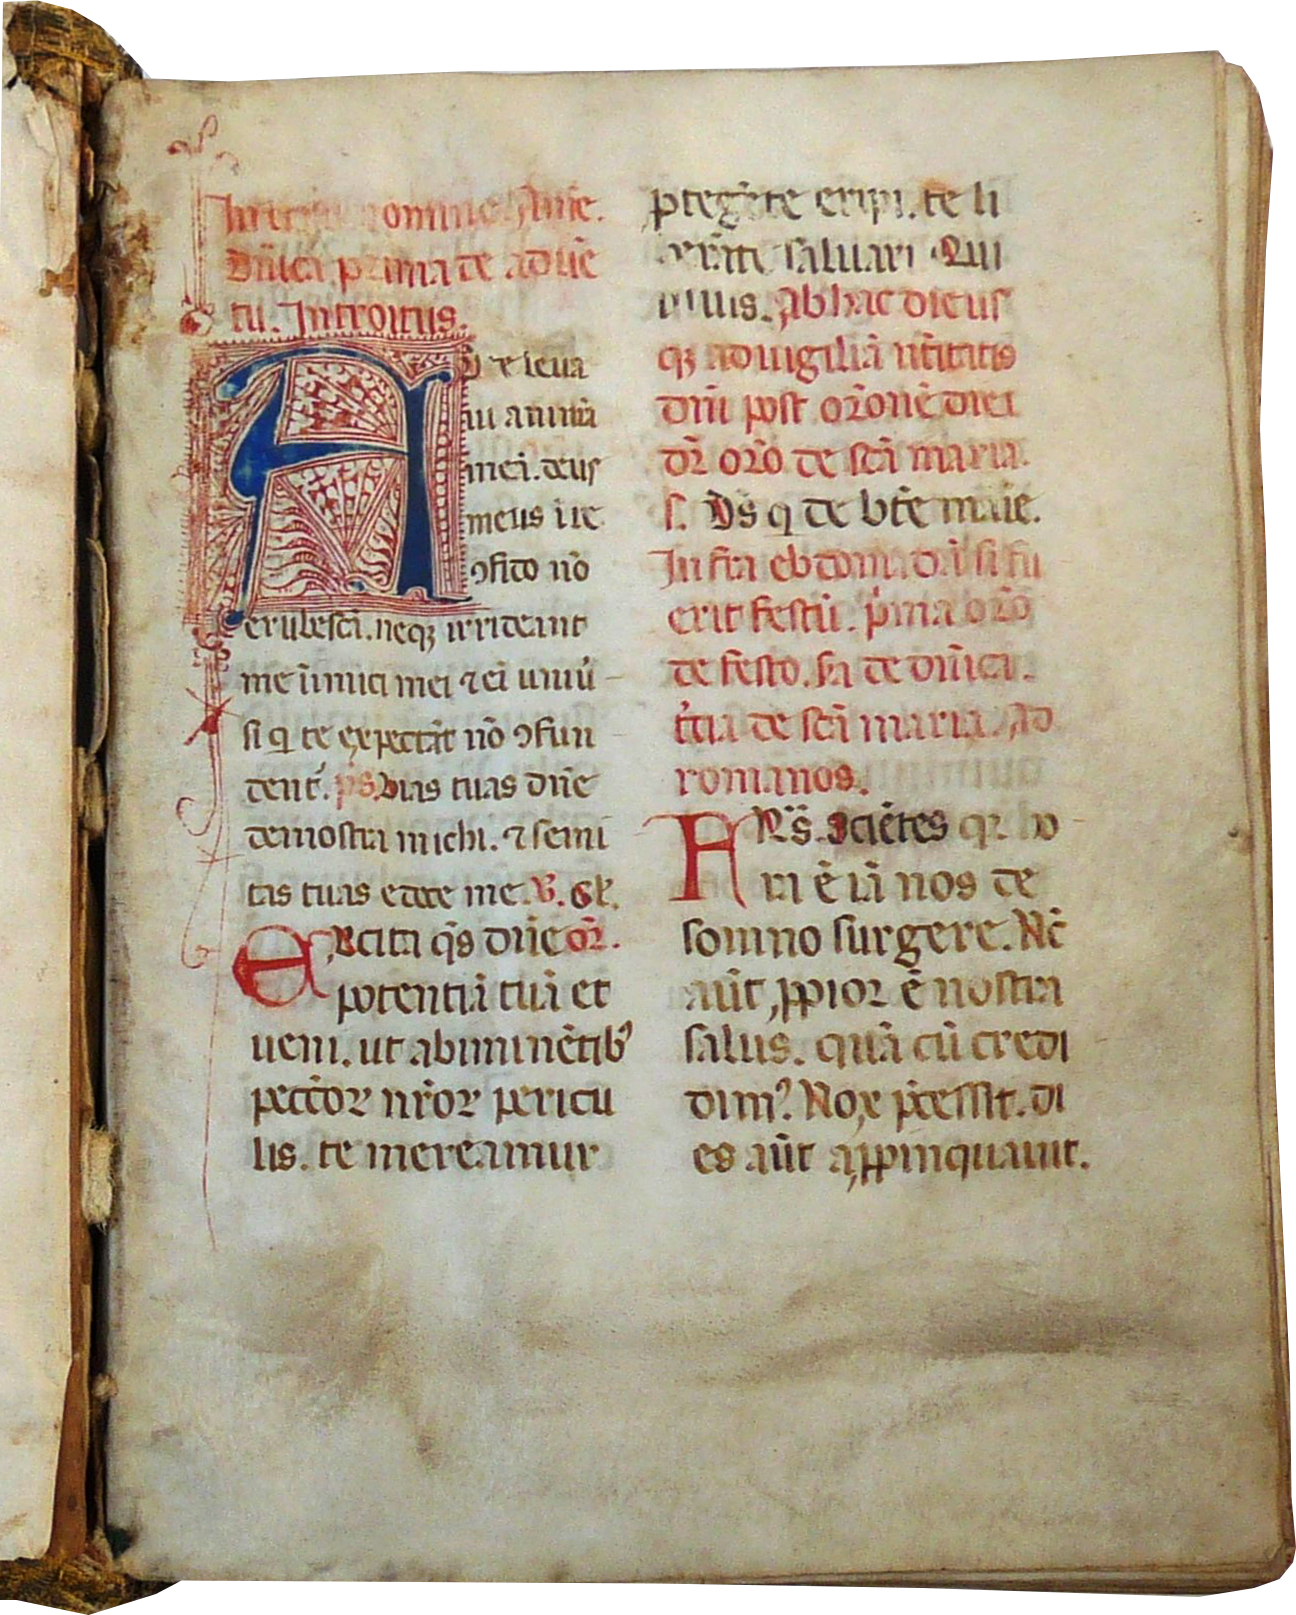 In nomine
Dn̄ica prima de aduē
tu. Introitus.
A D te leua
ui animā
meā. deus
meus ī te
ꝯfido nō
erubescā. neqꝫ irrideant
me īimici mei ⁊ eī uniū
si q̄ te expectāt nō ꝯfun
dent̄. p̄s. vias tuas dn̄e
demostra michi. ⁊ semi
tas tuas edoce me. V. Gl̄.
EXcita q̄s dn̄e or̄.
potentiā tuā et
ueni. ut ab iminētibꝰ
pecc̄oꝝ nr̄oꝝ pericu
lis. te mereamur
ꝓteḡte eripi. te li
saluari Qui
uiuis. Ab hac die usꝰ
qꝫ ad uigiliā nr̄itatis
dn̄i post or̄onē diei
dr̄ or̄o de sc̄a maria.
s. Ds̄ q̄ de bt̄e marie.
Infra ebdomadā si fu
erit festū. p̄ma or̄o
de festo. s̄a de dn̄ica.
t̄cia de sc̄a maria. Ad
romanos.
FRs̄. Sciētes qꝛ ho
ra ē iā nos de
somno surgere. Nc̄
aūt ꝓpior ē nostra
salus. quā cū credi
dimꝰ. Nox p̄cessit. di
es aūt aꝓpinquauit.